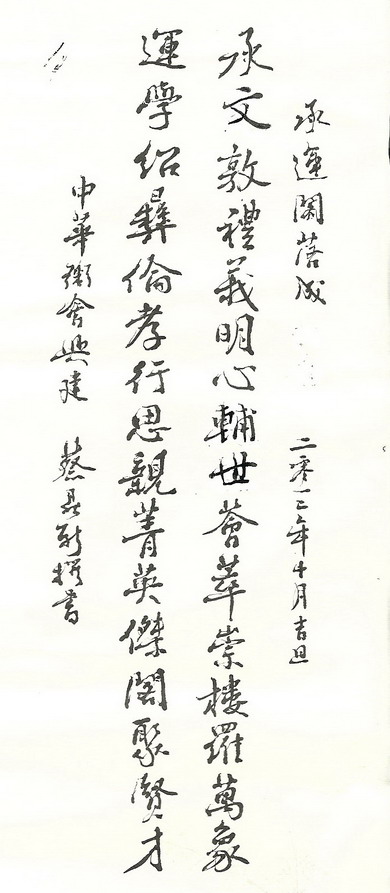 承運閣落成
二零一二年十月吉旦
承文敦禮義明心輔世薈萃崇樓羅萬象
運學紹彝倫孝行思親菁英傑閣聚賢才
中華衛會興建
蔡 撰書